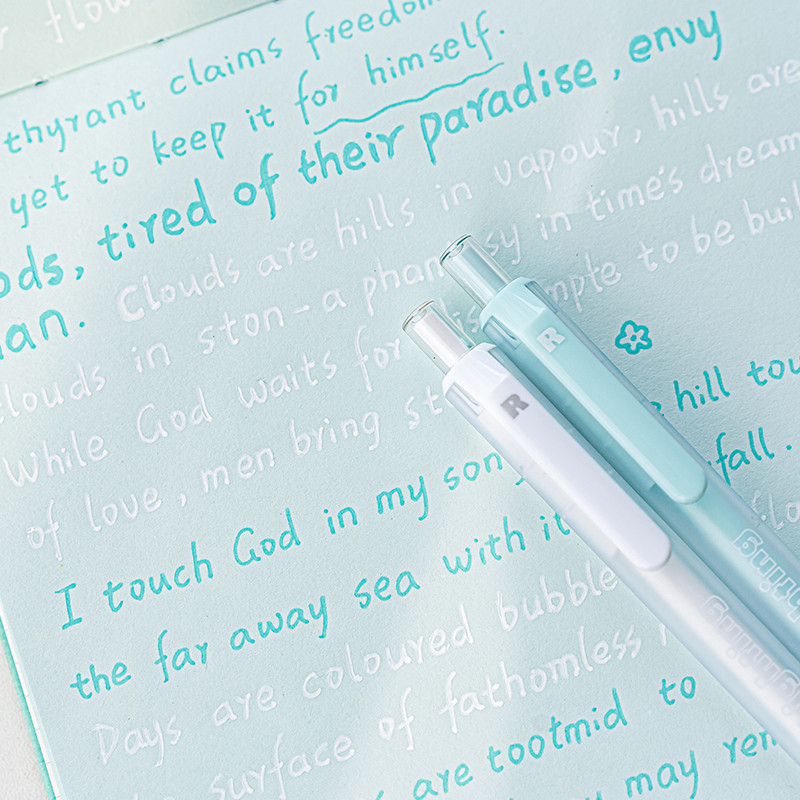 flow
thyrant claims freedom
yet to keep it for himself.
ods, tired of their paradise, envy
an. Clouds are hills in vapour, hills are
clouds in ston-a phan sy in time's dream
While God waits for is mple to be buil
of love, men bring st
hill tou
I touch God in my son
fall.
the far away sea with it
Days are coloured bubble
surface of fathomless
are tootmid to
may rem
R
R